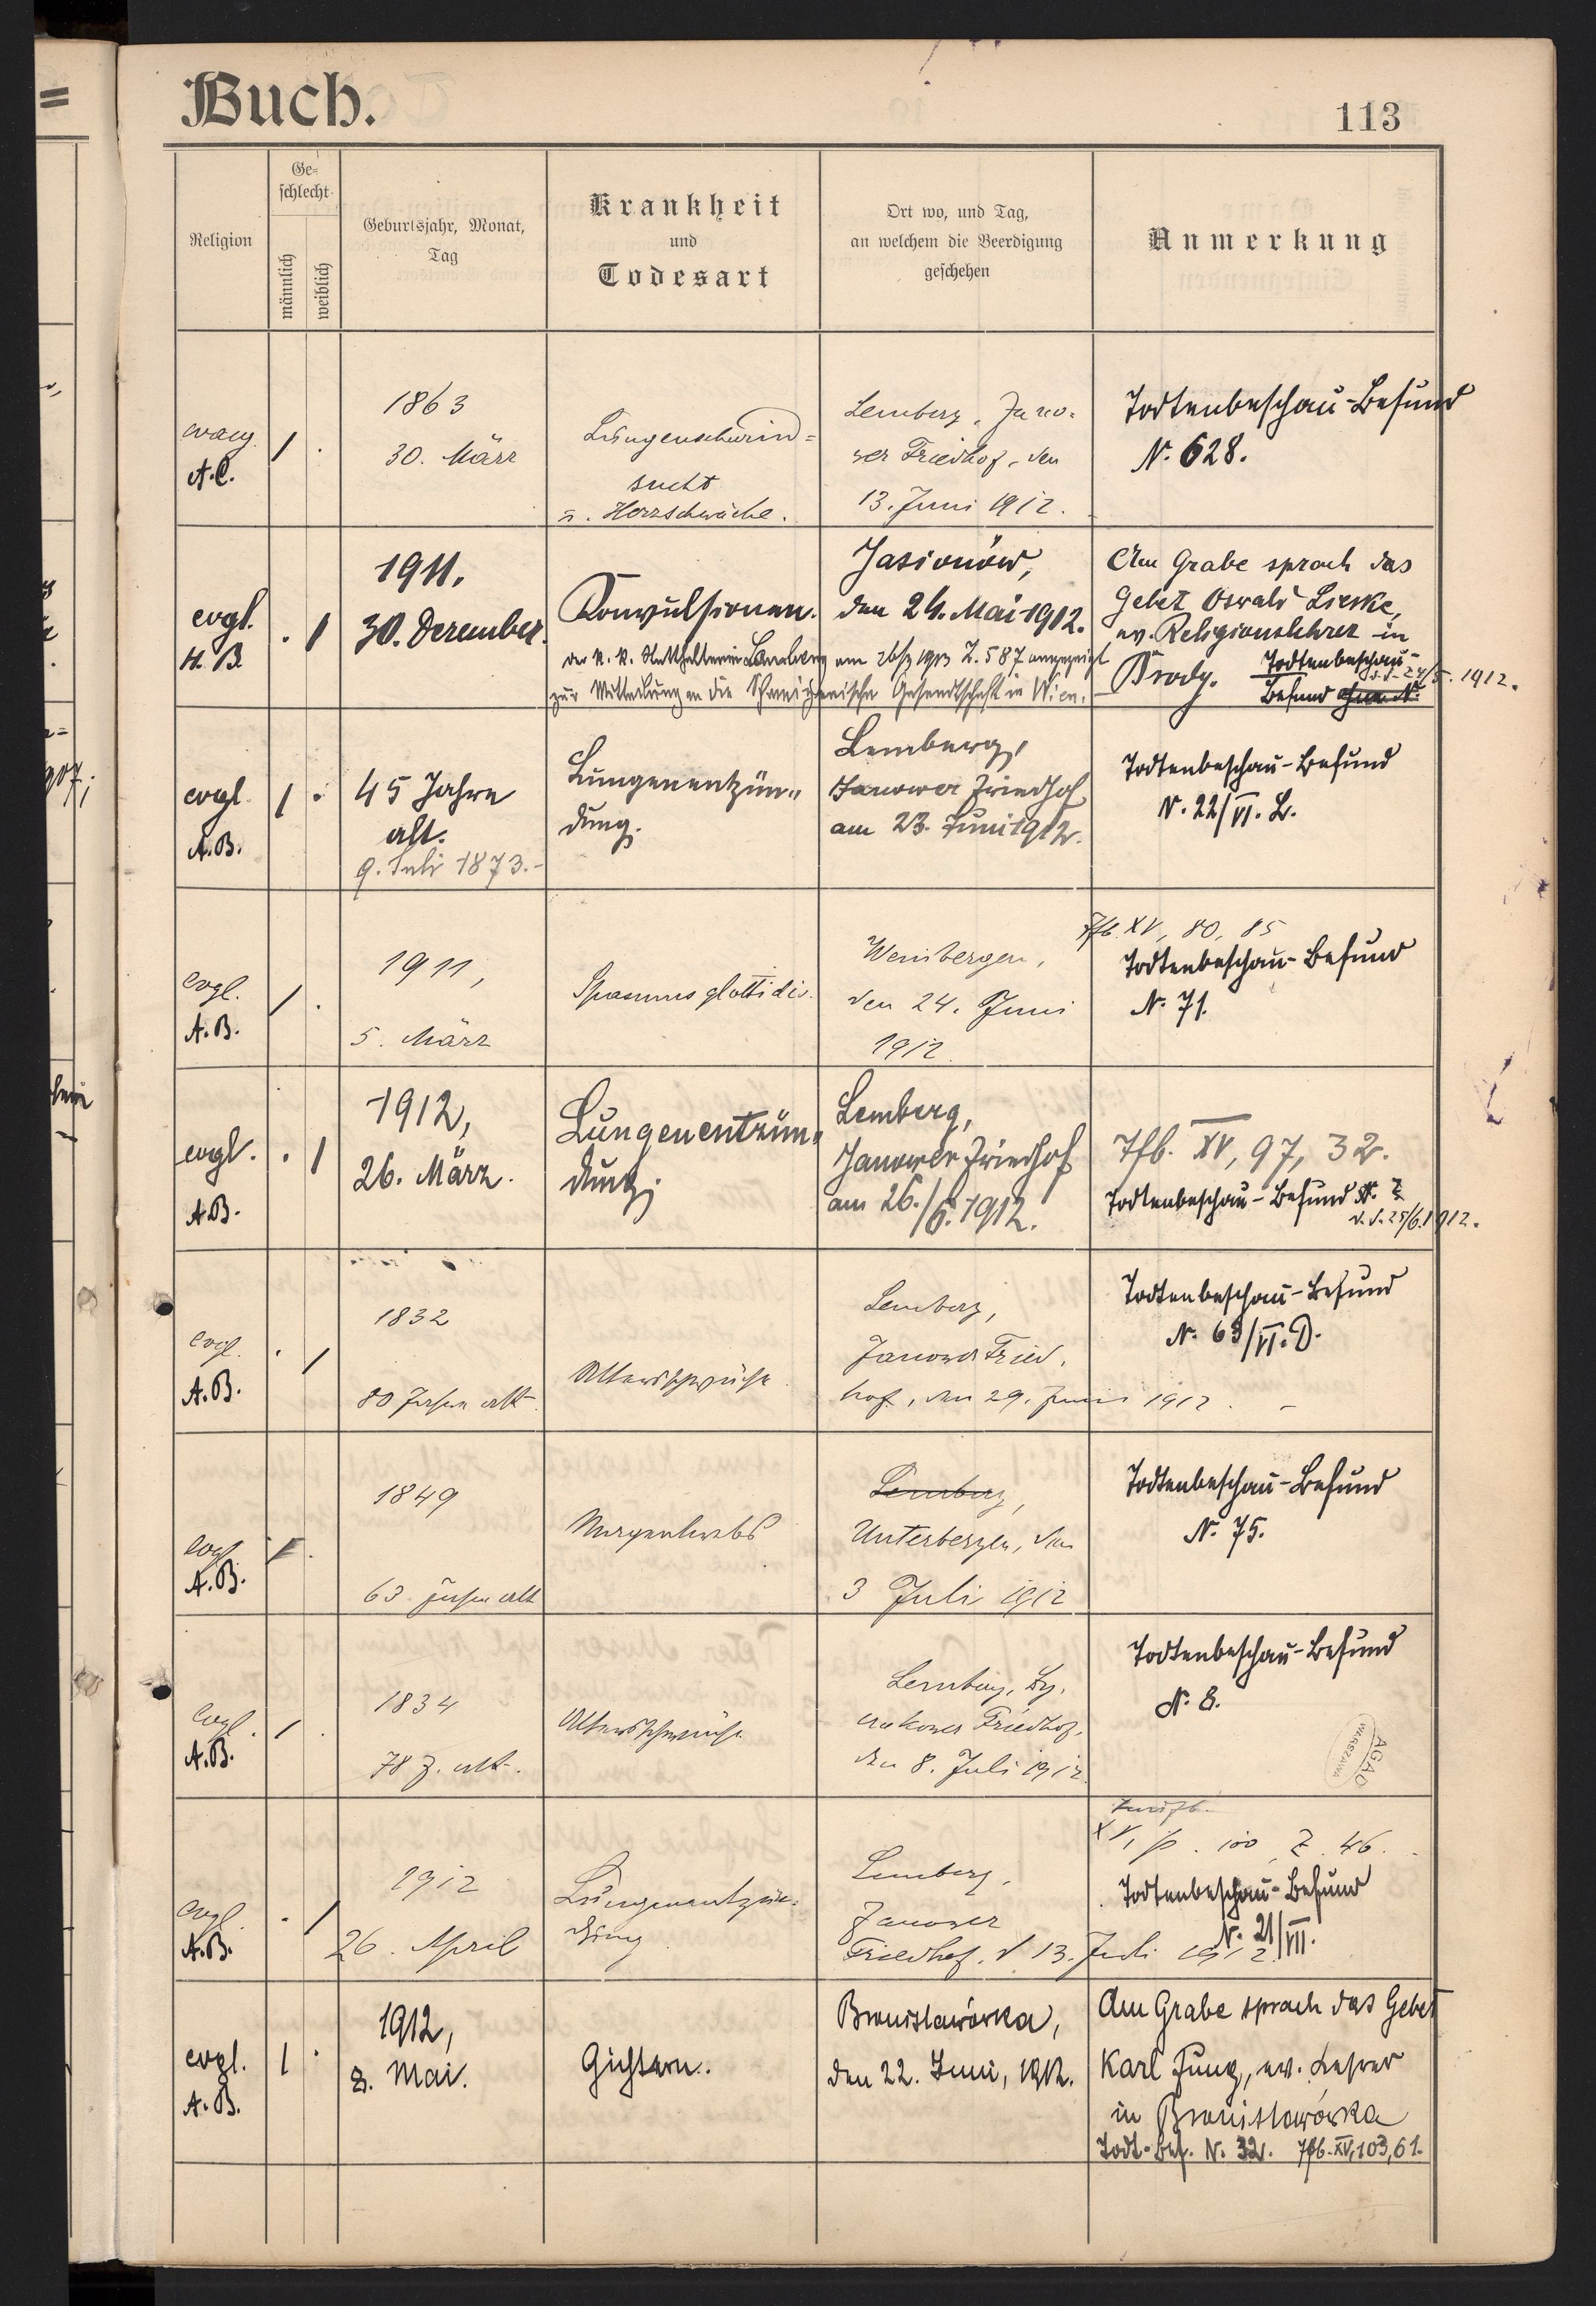 Buch.
113
Religion
Ge=
schlecht
männlich
weiblich
Geburtsjahr, Monat,
Tag
Krankheit
und
Todesart
Ort wo, und Tag,
an welchem die Beerdigung
geschehen
Anmerkung
evang.
A.C.
1 .
1863
30. März
Lungenschwind=
sucht
u. Herzschwäche.
Lemberg, Jano-
wer Friedhof, den
13. Juni 1912.
Todtenbeschau-Befund
N. 628.
evgl.
H. B.
. 1
1911.
30. Dezember.
Konvulsionen.
Jasionów,
den 24. Mai 1912.
der k. k. Statthalterei Lemberg am 26/3 1913 Z. 587 angezeigt
zur Mitteilung an die Schweizerische Gesandtschaft in Wien.
Am Grabe sprach das
Gebet Oswald Lieske,
ev. Religionslehrer in
Brody. Todtenbeschau-
Befund ohne N.
d. d. 24/5. 1912.
evgl.
A.B.
1 .
45 Jahre
alt.
9. Juli 1873.-
Lungenentzün-
dung.
Lemberg,
Janower Friedhof
am 23. Juni 1912.
Todtenbeschau-Befund
N. 22/VI. L.
evgl.
A.B.
1 .
1911,
5. März
Spasmus glottidis.
Weinbergen,
den 24. Juni
1912.
Tfb. XV, 80, 85
Todtenbeschau-Befund
N. 71.
evgl.
A.B.
. 1
1912,
26. März.
Lungenentzün-
dung.
Lemberg,
Janower Friedhof
am 26./6. 1912.
Tfb. XV, 97, 32.
Todtenbeschau-Befund
d. d. 25/6. 1912.
evgl.
A.B.
. 1
1832
80 Jahre alt.
Altersschwäche
Lemberg,
Janower Fried-
hof, den 29. Juni 1912. -
Todtenbeschau-Befund
N. 63/VI. D.
evgl.
A.B.
1 .
1849
63 Jahre alt
Magenkrebs
Lemberg,
Unterbergen, den
3 Juli 1912
Todtenbeschau-Befund
N. 75.
evgl.
A.B.
1 .
1834
78 J. alt.
Altersschwäche
Lemberg, Ly-
czakower Friedhof,
den 8. Juli 1912.
Todtenbeschau-Befund
N. 8.
AGAD
WARSZAWA
evgl.
A.B.
. 1
1912
26. April
Lungenentzün-
dung
Lemberg,
Janower
Friedhof, d. 13. Juli 1912.
Taufb.
XV, p. 100, Z. 46.
Todtenbeschau-Befund
N. 21/VII.
evgl.
A.B.
1 .
1912,
8. Mai.
Gichtern.
Bronislawówka,
den 22. Juni, 1912.
Am Grabe sprach das Gebet
Karl Jung, ev. Lehrer
in Bronislowówka
Todt-Bef. N. 32. Tfb. XV, 103, 61.